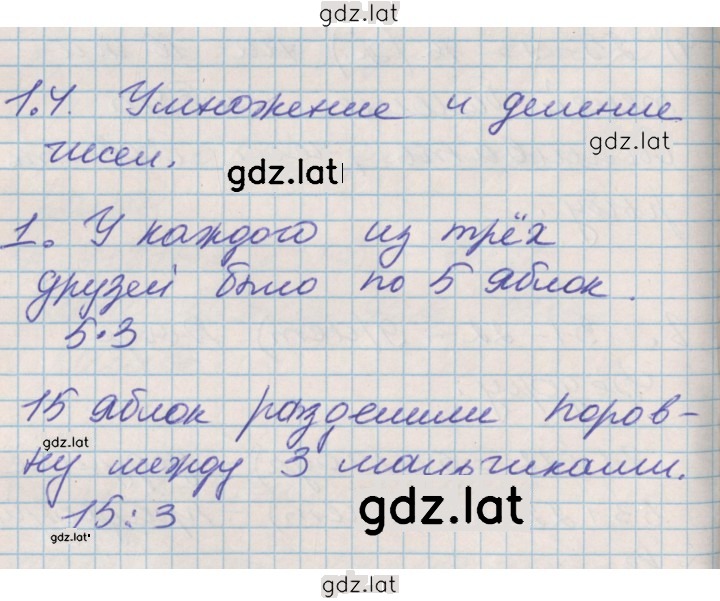 gdz.lat
1.4. Умножение и деление
gdz.lat
чисел.
gdz.lat
1. У каждого из трёх
друзей было по 5 яблок.
5·3
15 яблок разделили поров-
gdz.lat
ну между 3 мальчиками.
15:3
gdz.lat
gdz.lat
gdz.lat